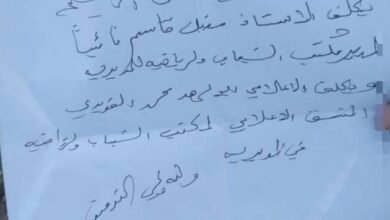 يكلف الاستاذ مقبل قاسم نائباً
لمدير مكتب الشباب والرياضه للمديريه
ويكلف الاعلامي محمد
المنسق الاعلامي لمكتب الشباب والرياضه
في المديريه
والله ولي التوفيق